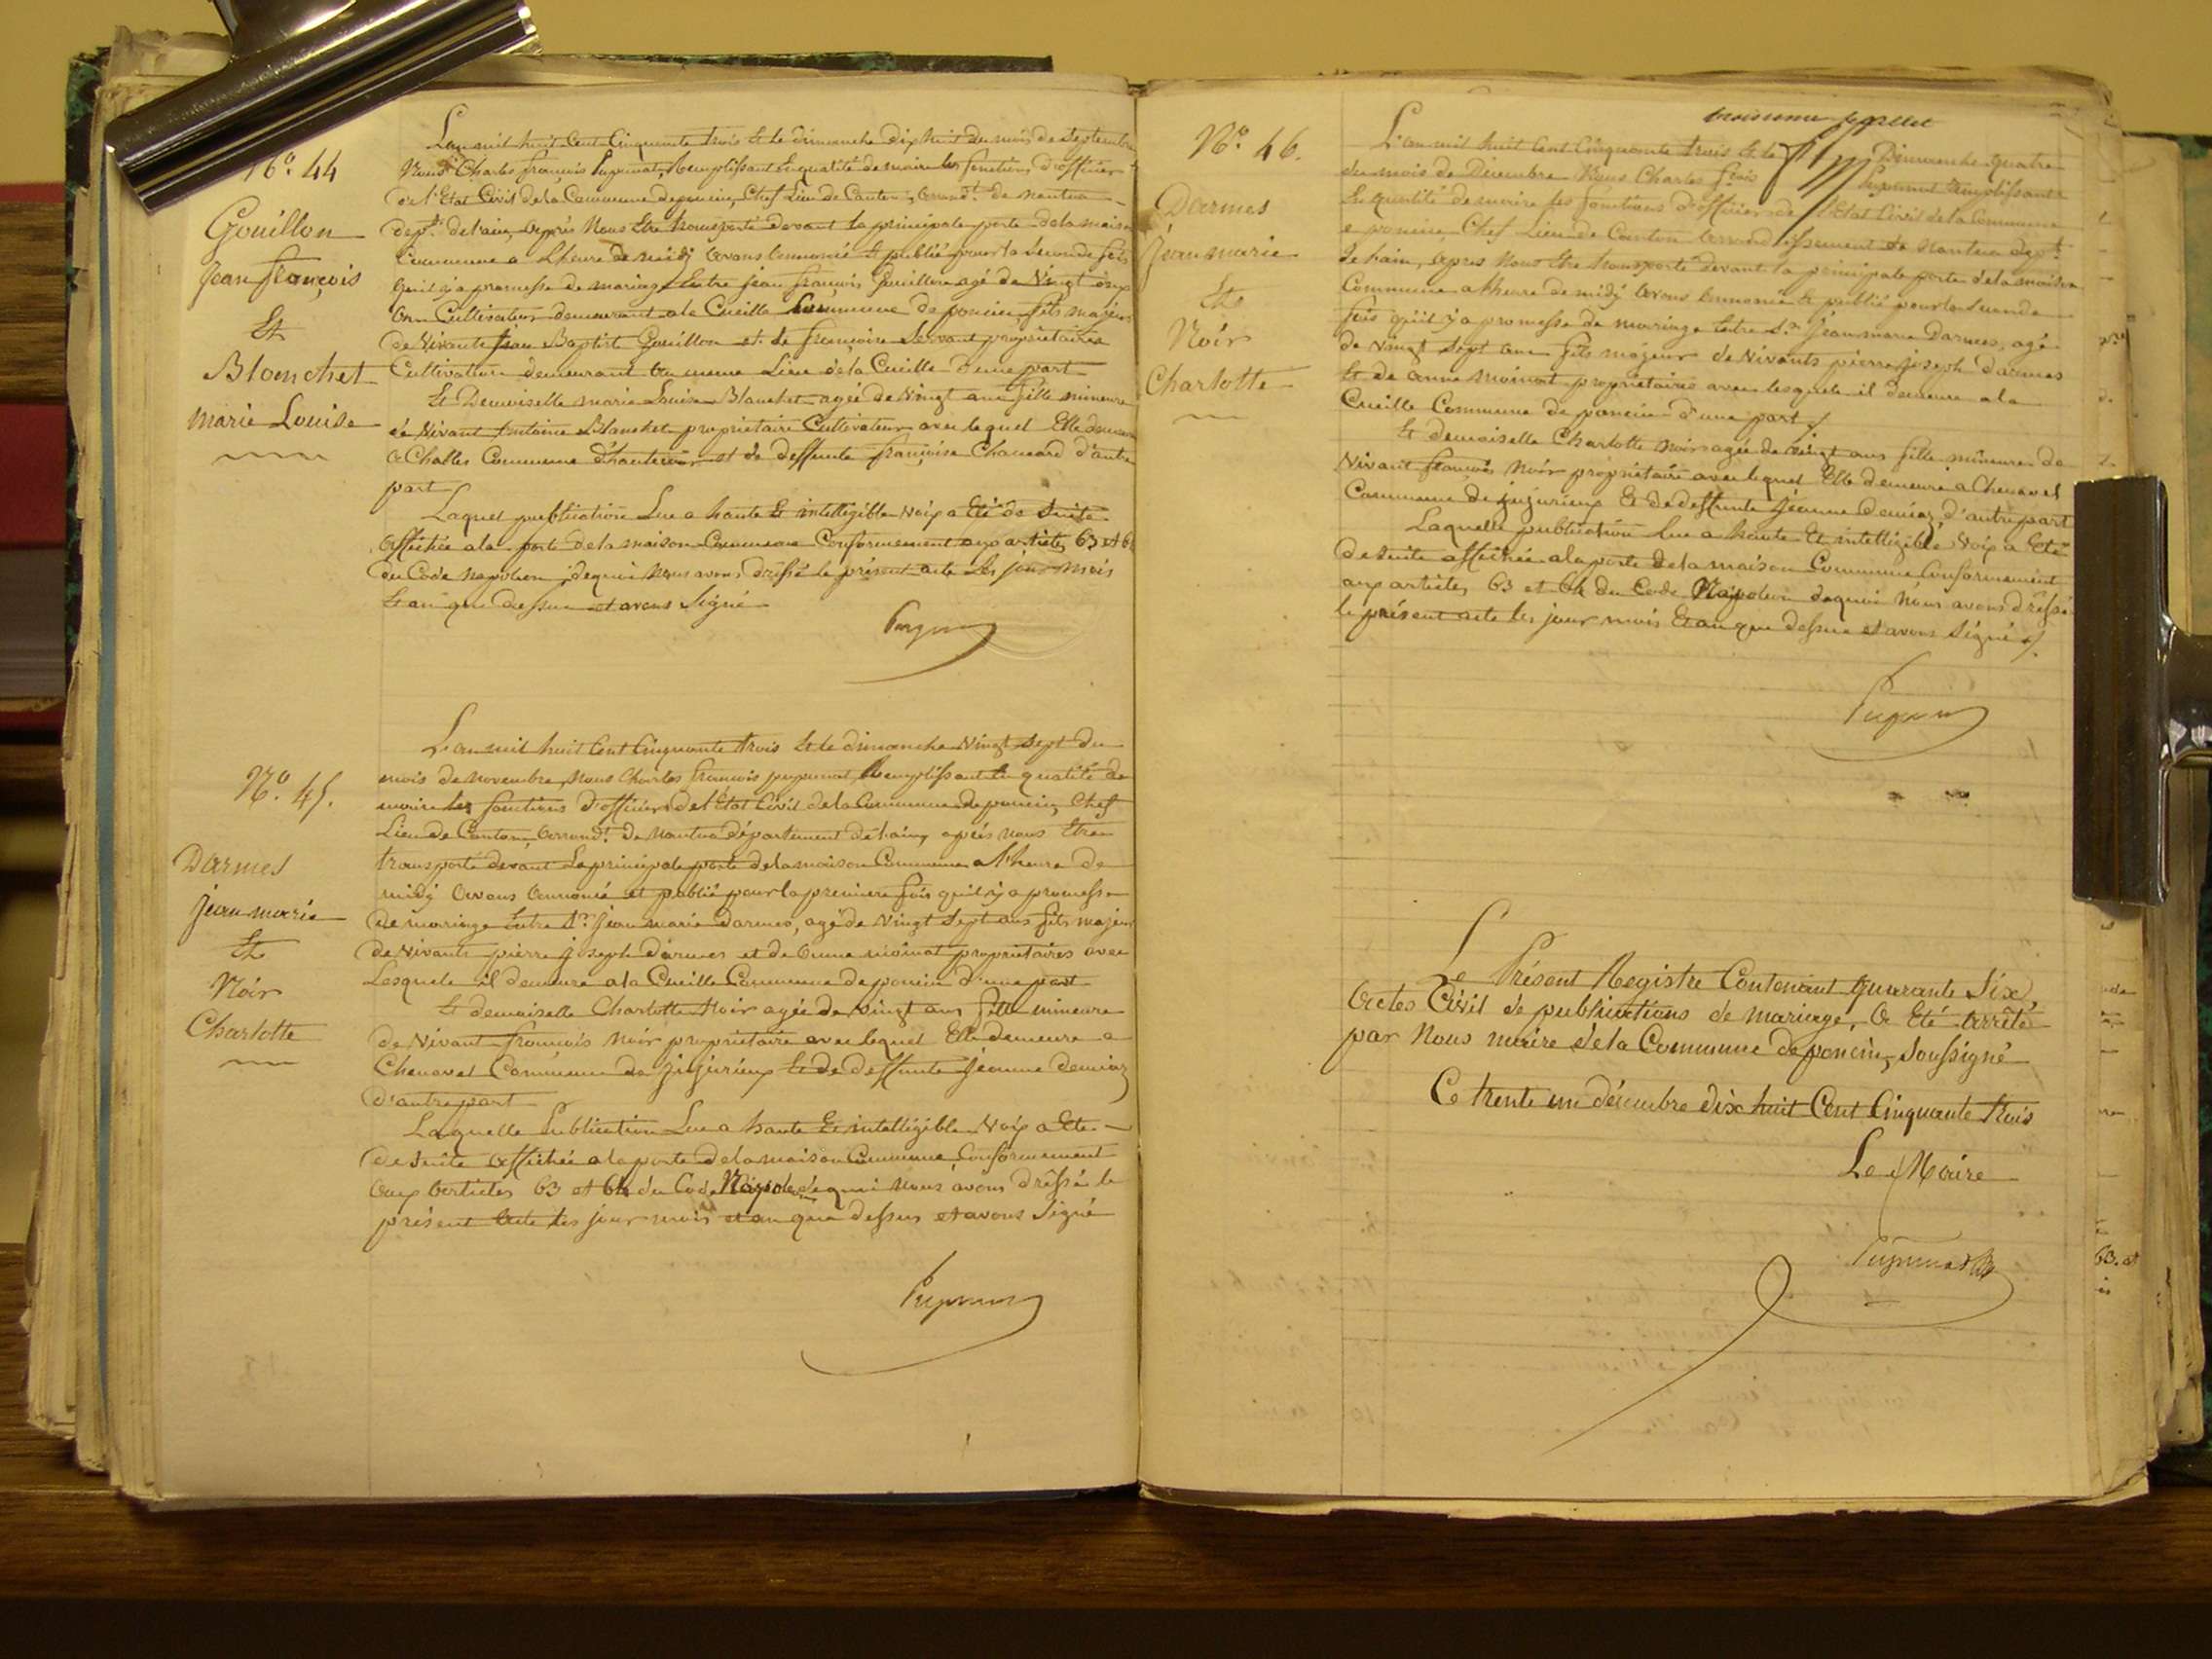 N.o 44
Gouillon
Jean françois
Et
Blanchet
marie Louise
L'an mil huit Cent Cinquante trois Et le dimanche dix huit du mois de Septembre
Nous Charles françois Remplissant En qualité de maire les fonctions d'officier
de l'Etat Civil de la Commune de poncin, Chef Lieu de Canton, arrond.t de nantua
dep.t de l'ain, après Nous Etre transporté devant la principale porte de la maison
Commune a l'heure de midy avons annoncé Et publié pour la Seconde fois
qu'il y a promesse de mariage Entre jean françois Gouillon agé de Vingt
Cultivateur demeurant a la Cueille Commune de poncin, fils majeur
de Vivants Jean Baptist Gouillon et de françoise Servant propriétaires
Cultivateur demeurant au meme Lieu de la Cueille d'une part
Et Demoiselle marie Louise Blanchet agée de Vingt ans fille mineure
de Vivant Antoine Blanchet propriétaire Cultivateur avec lequel Elle demeure
a Challes Commune et de deffunte françoise d'autre
part
Laquel publication Lue a haute Et intelligible Voix a Eté de Suite
affichée a la porte de la maison Commune Conformement aux articles 63 et 64
du Code napoleon, de quoi Nous avons dréssé le présent acte Les jour mois
Et an que dessus et avons Signé
N.o 45.
Darmes
jean marie
Et
Noir
Charlotte
L'an mil huit Cent Cinquante trois Et le dimanche Vingt Sept du
mois de novembre, Nous Charles francois Remplissant En qualité de
maire les fonctions d'officier de l'Etat Civil de la Commune de poncin, Chef
Lieu de Canton, arrond.t de Nantua département de l'ain, après nous Etre
transporté devant La principale porte de la maison Commune a l'heure de
midy avons annoncé et publié pour la premiere fois qu'il y a promesse
de mariage Entre S.r Jean marie darmes, agé de Vingt Sept ans fils majeur
de Vivants pierre joseph darmes et de anne moinat propriétaires avec
Lesquels il demeure a la Cueille Commune de poncin d'une part
Et demoiselle Charlotte Noir agée de vingt ans fille mineure
de Vivant françois Noir propriétaire avec lequel Elle demeure a
Chenavel Commune de jujurieux Et de deffunte jeanne demiaz
d'autre part
Laquelle Publication Lue a haute Et intelligible Voix a Eté
de Suite affichée a la porte de la maison Commune, Conformement
aux articles 63 et 64 du Code Napoleon de quoi nous avons dréssé le
présent acte les jour mois et an que dessus et avons Signé
N.o 46.
Darmes
jean marie
Et
Noir
Charlotte
troisieme feuillet
L'an mil huit Cent Cinquante trois Et le Dimanche quatre
du mois de Décembre Nous Charles f.cois remplissant
En qualité de maire les fonctions d'officier de l'Etat Civil de la Commune
e poncin, Chef Lieu de Canton arrondissement de Nantua dep.t
de l'ain, apres Nous Etre transporté devant la principale porte de la maison
Commune a l'heure de midy avons annoncé Et publié pour la Seconde
fois qu'il y a promesse de mariage Entre S.r Jean marie Darmes, agé
de Vingt Sept ans fils majeur de Vivants pierre joseph darmes
Et de anne moinat propriétaires avec lesquels il demeure a la
Cueille Commune de poncin d'une part
Et demoiselle Charlotte Noir agée de vingt ans fille mineure de
Vivant françois Noir propriétaire avec lequel Elle demeure a Chenavel
Commune de jujurieux Et de deffunte Jeanne demiaz, d'autre part
Laquelle publication lue a haute Et intelligible Voix a Eté
de suite affichée a la porte de la maison Commune Conformement
aux articles 63 et 64 du Code Napoleon de quoi nous avons dréssé
le présent acte les jour mois Et an que dessus et avons Signé
Le Présent Registre Contenant quarante Six,
Actes Civil de publications de mariage, a Eté arrêté
par Nous maire de la Commune de poncin, Soussigné
Ce trente un décembre dix huit Cent Cinquante trois
Le Maire
63. et